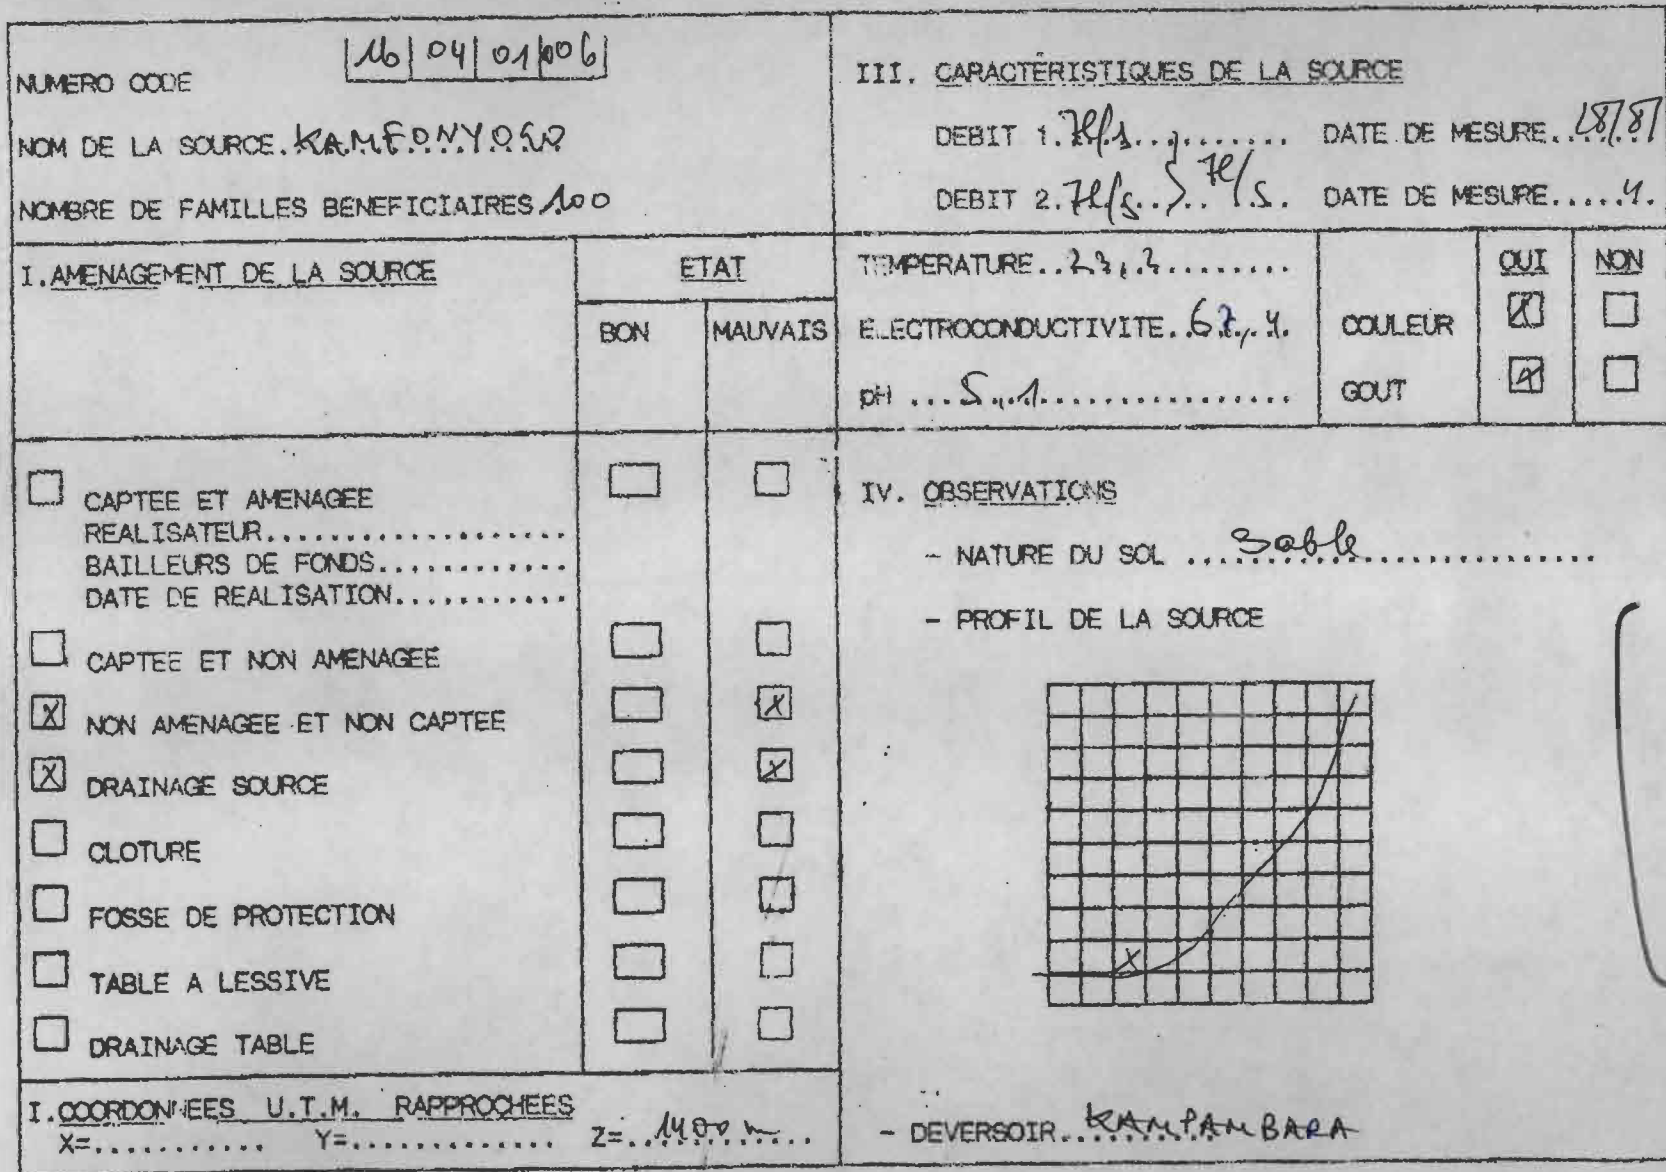 NUMERO CODE |16|04|01|006|
NOM DE LA SOURCE.KAMFONYOGO
NOMBRE DE FAMILLES BENEFICIAIRES 100
I.AMENAGEMENT DE LA SOURCE
ETAT
BON MAUVAIS
CAPTEE ET AMENAGEE
REALISATEUR...................
BAILLEURS DE FONDS............
DATE DE REALISATION...........
CAPTEE ET NON AMENAGEE
X NON AMENAGEE ET NON CAPTEE X
X DRAINAGE SOURCE X
CLOTURE
FOSSE DE PROTECTION
TABLE A LESSIVE
DRAINAGE TABLE
I.COORDONNEES U.T.M. RAPPROCHEES
X=........... Y=............. Z=..1400 m.....
III. CARACTÉRISTIQUES DE LA SOURCE
DEBIT 1.7l/s........... DATE DE MESURE..
DEBIT 2.7l/s..>..7l/s. DATE DE MESURE.....
TEMPERATURE..23,2........
OUI NON
ELECTROCONDUCTIVITE..
COULEUR X
pH ...5,1................
GOUT X
IV. OBSERVATIONS
- NATURE DU SOL ...Sable...............
- PROFIL DE LA SOURCE
X
- DEVERSOIR..KAMPAMBARA